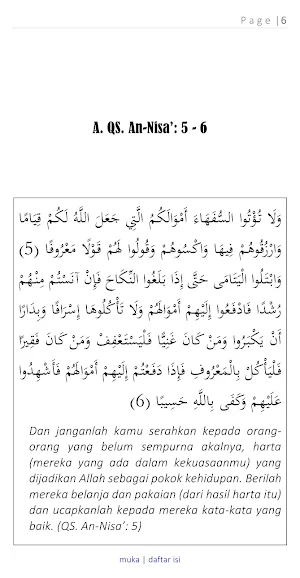 Page |6
A. QS. An-Nisa': 5 - 6
وَلَا تُؤْتُوا السُّفَهَاءَ أَمْوَالَكُمُ الَّتِي جَعَلَ اللَّهُ لَكُمْ قِيَامًا
وَارْزُقُوهُمْ فِيهَا وَاكْسُوهُمْ وَقُولُوا لَهُمْ قَوْلًا مَعْرُوفًا (5)
وَابْتَلُوا الْيَتَامَى حَتَّى إِذَا بَلَغُوا النِّكَاحَ فَإِنْ آنَسْتُمْ مِنْهُمْ
رُشْدًا فَادْفَعُوا إِلَيْهِمْ أَمْوَالَهُمْ وَلَا تَأْكُلُوهَا إِسْرَافًا وَبِدَارًا
أَنْ يَكْبَرُوا وَمَنْ كَانَ غَنِيًّا فَلْيَسْتَعْفِفْ وَمَنْ كَانَ فَقِيرًا
فَلْيَأْكُلْ بِالْمَعْرُوفِ فَإِذَا دَفَعْتُمْ إِلَيْهِمْ أَمْوَالَهُمْ فَأَشْهِدُوا
عَلَيْهِمْ وَكَفَى بِاللَّهِ حَسِيبًا (6)
Dan janganlah kamu serahkan kepada orang-
orang yang belum sempurna akalnya, harta
(mereka yang ada dalam kekuasaanmu) yang
dijadikan Allah sebagai pokok kehidupan. Berilah
mereka belanja dan pakaian (dari hasil harta itu)
dan ucapkanlah kepada mereka kata-kata yang
baik. (QS. An-Nisa': 5)
muka | daftar isi